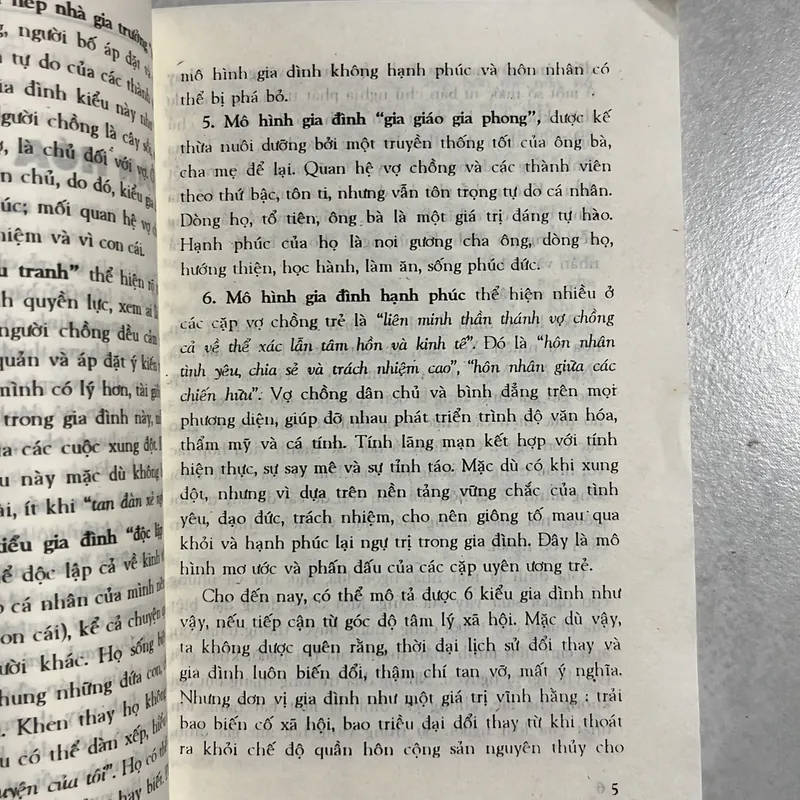 nếp nhà gia trưởng
người bố áp đặt
tự do của các thành
đình kiểu này như
người chồng là cây
là chủ đối với vợ
chủ, do đó, kiểu gia
mối quan hệ vợ
nhiệm và vì con cái.
tranh” thể hiện rõ
quyền lực, xem ai
người chồng đều cảm
quản và áp đặt ý kiến
mình có lý hơn, tài
trong gia đình này,
các cuộc xung đột.
này mặc dù không
ít khi “tan đàn xẻ
kiểu gia đình “độc lập
độc lập cả về kinh
cá nhân của mình
con cái), kể cả chuyện
người khác. Họ sống
nhưng những đứa con,
Khen thay họ không
có thể dàn xếp,
chuyện của tôi”. Họ có thể
hay biết.
mô hình gia đình không hạnh phúc và hôn nhân có
thể bị phá bỏ.
5. Mô hình gia đình “gia giáo gia phong”, được kế
thừa nuôi dưỡng bởi một truyền thống tốt của ông bà,
cha mẹ để lại. Quan hệ vợ chồng và các thành viên
theo thứ bậc, tôn ti, nhưng vẫn tôn trọng tự do cá nhân.
Dòng họ, tổ tiên, ông bà là một giá trị đáng tự hào.
Hạnh phúc của họ là noi gương cha ông, dòng họ,
hướng thiện, học hành, làm ăn, sống phúc đức.
6. Mô hình gia đình hạnh phúc thể hiện nhiều ở
các cặp vợ chồng trẻ là “liên minh thần thánh vợ chồng
cả về thể xác lẫn tâm hồn và kinh tế”. Đó là “hôn nhân
tình yêu, chia sẻ và trách nhiệm cao”, “hôn nhân giữa các
chiến hữu”. Vợ chồng dân chủ và bình đẳng trên mọi
phương diện, giúp đỡ nhau phát triển trình độ văn hóa,
thẩm mỹ và cá tính. Tính lãng mạn kết hợp với tính
hiện thực, sự say mê và sự tỉnh táo. Mặc dù có khi xung
đột, nhưng vì dựa trên nền tảng vững chắc của tình
yêu, đạo đức, trách nhiệm, cho nên giông tố mau qua
khỏi và hạnh phúc lại ngự trị trong gia đình. Đây là mô
hình mơ ước và phấn đấu của các cặp uyên ương trẻ.
Cho đến nay, có thể mô tả được 6 kiểu gia đình như
vậy, nếu tiếp cận từ góc độ tâm lý xã hội. Mặc dù vậy,
ta không được quên rằng, thời đại lịch sử đổi thay và
gia đình luôn biến đổi, thậm chí tan vỡ, mất ý nghĩa.
Nhưng đơn vị gia đình như một giá trị vĩnh hằng : trải
bao biến cố xã hội, bao triều đại đổi thay từ khi thoát
ra khỏi chế độ quần hôn cộng sản nguyên thủy cho
5